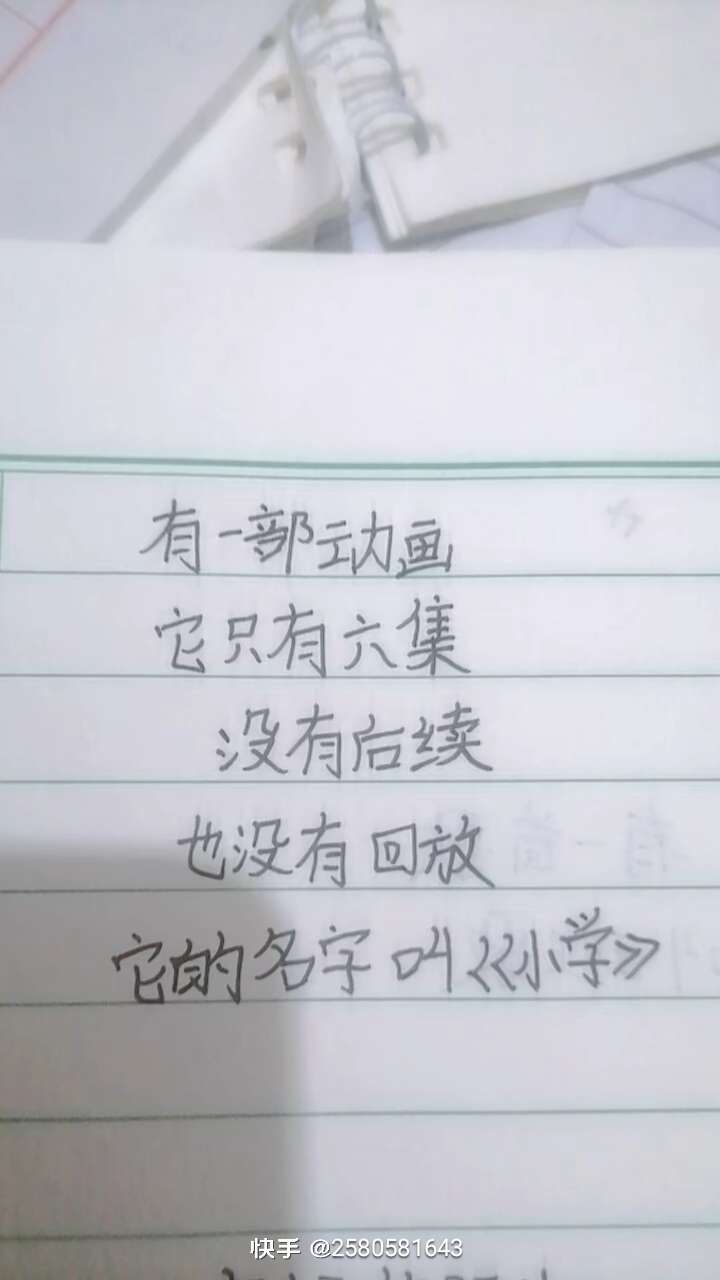 有一部动画
它只有六集
没有后续
也没有回放
它的名字叫《小学》
快手 @2580581643